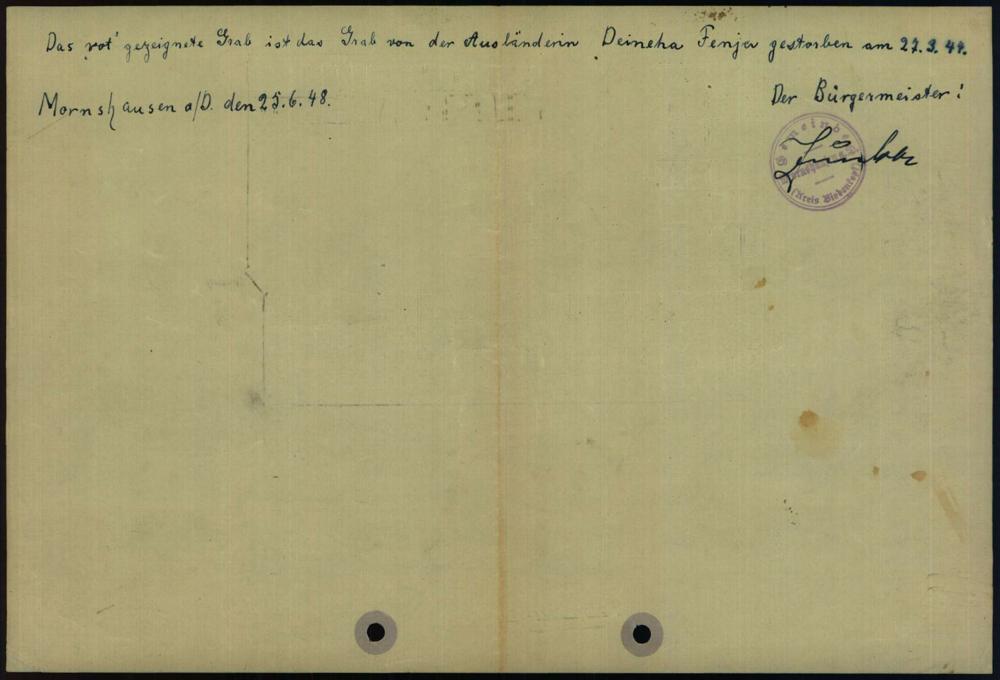 Das rot' gezeignete Grab ist das Grab von der Ausländerin Deineha Fenja gestorben am 27.3.44.
Mornshausen a/D. den 25.6.48.
Der Bürgermeister!
Gemeinde
(Kreis Biedenkopf)